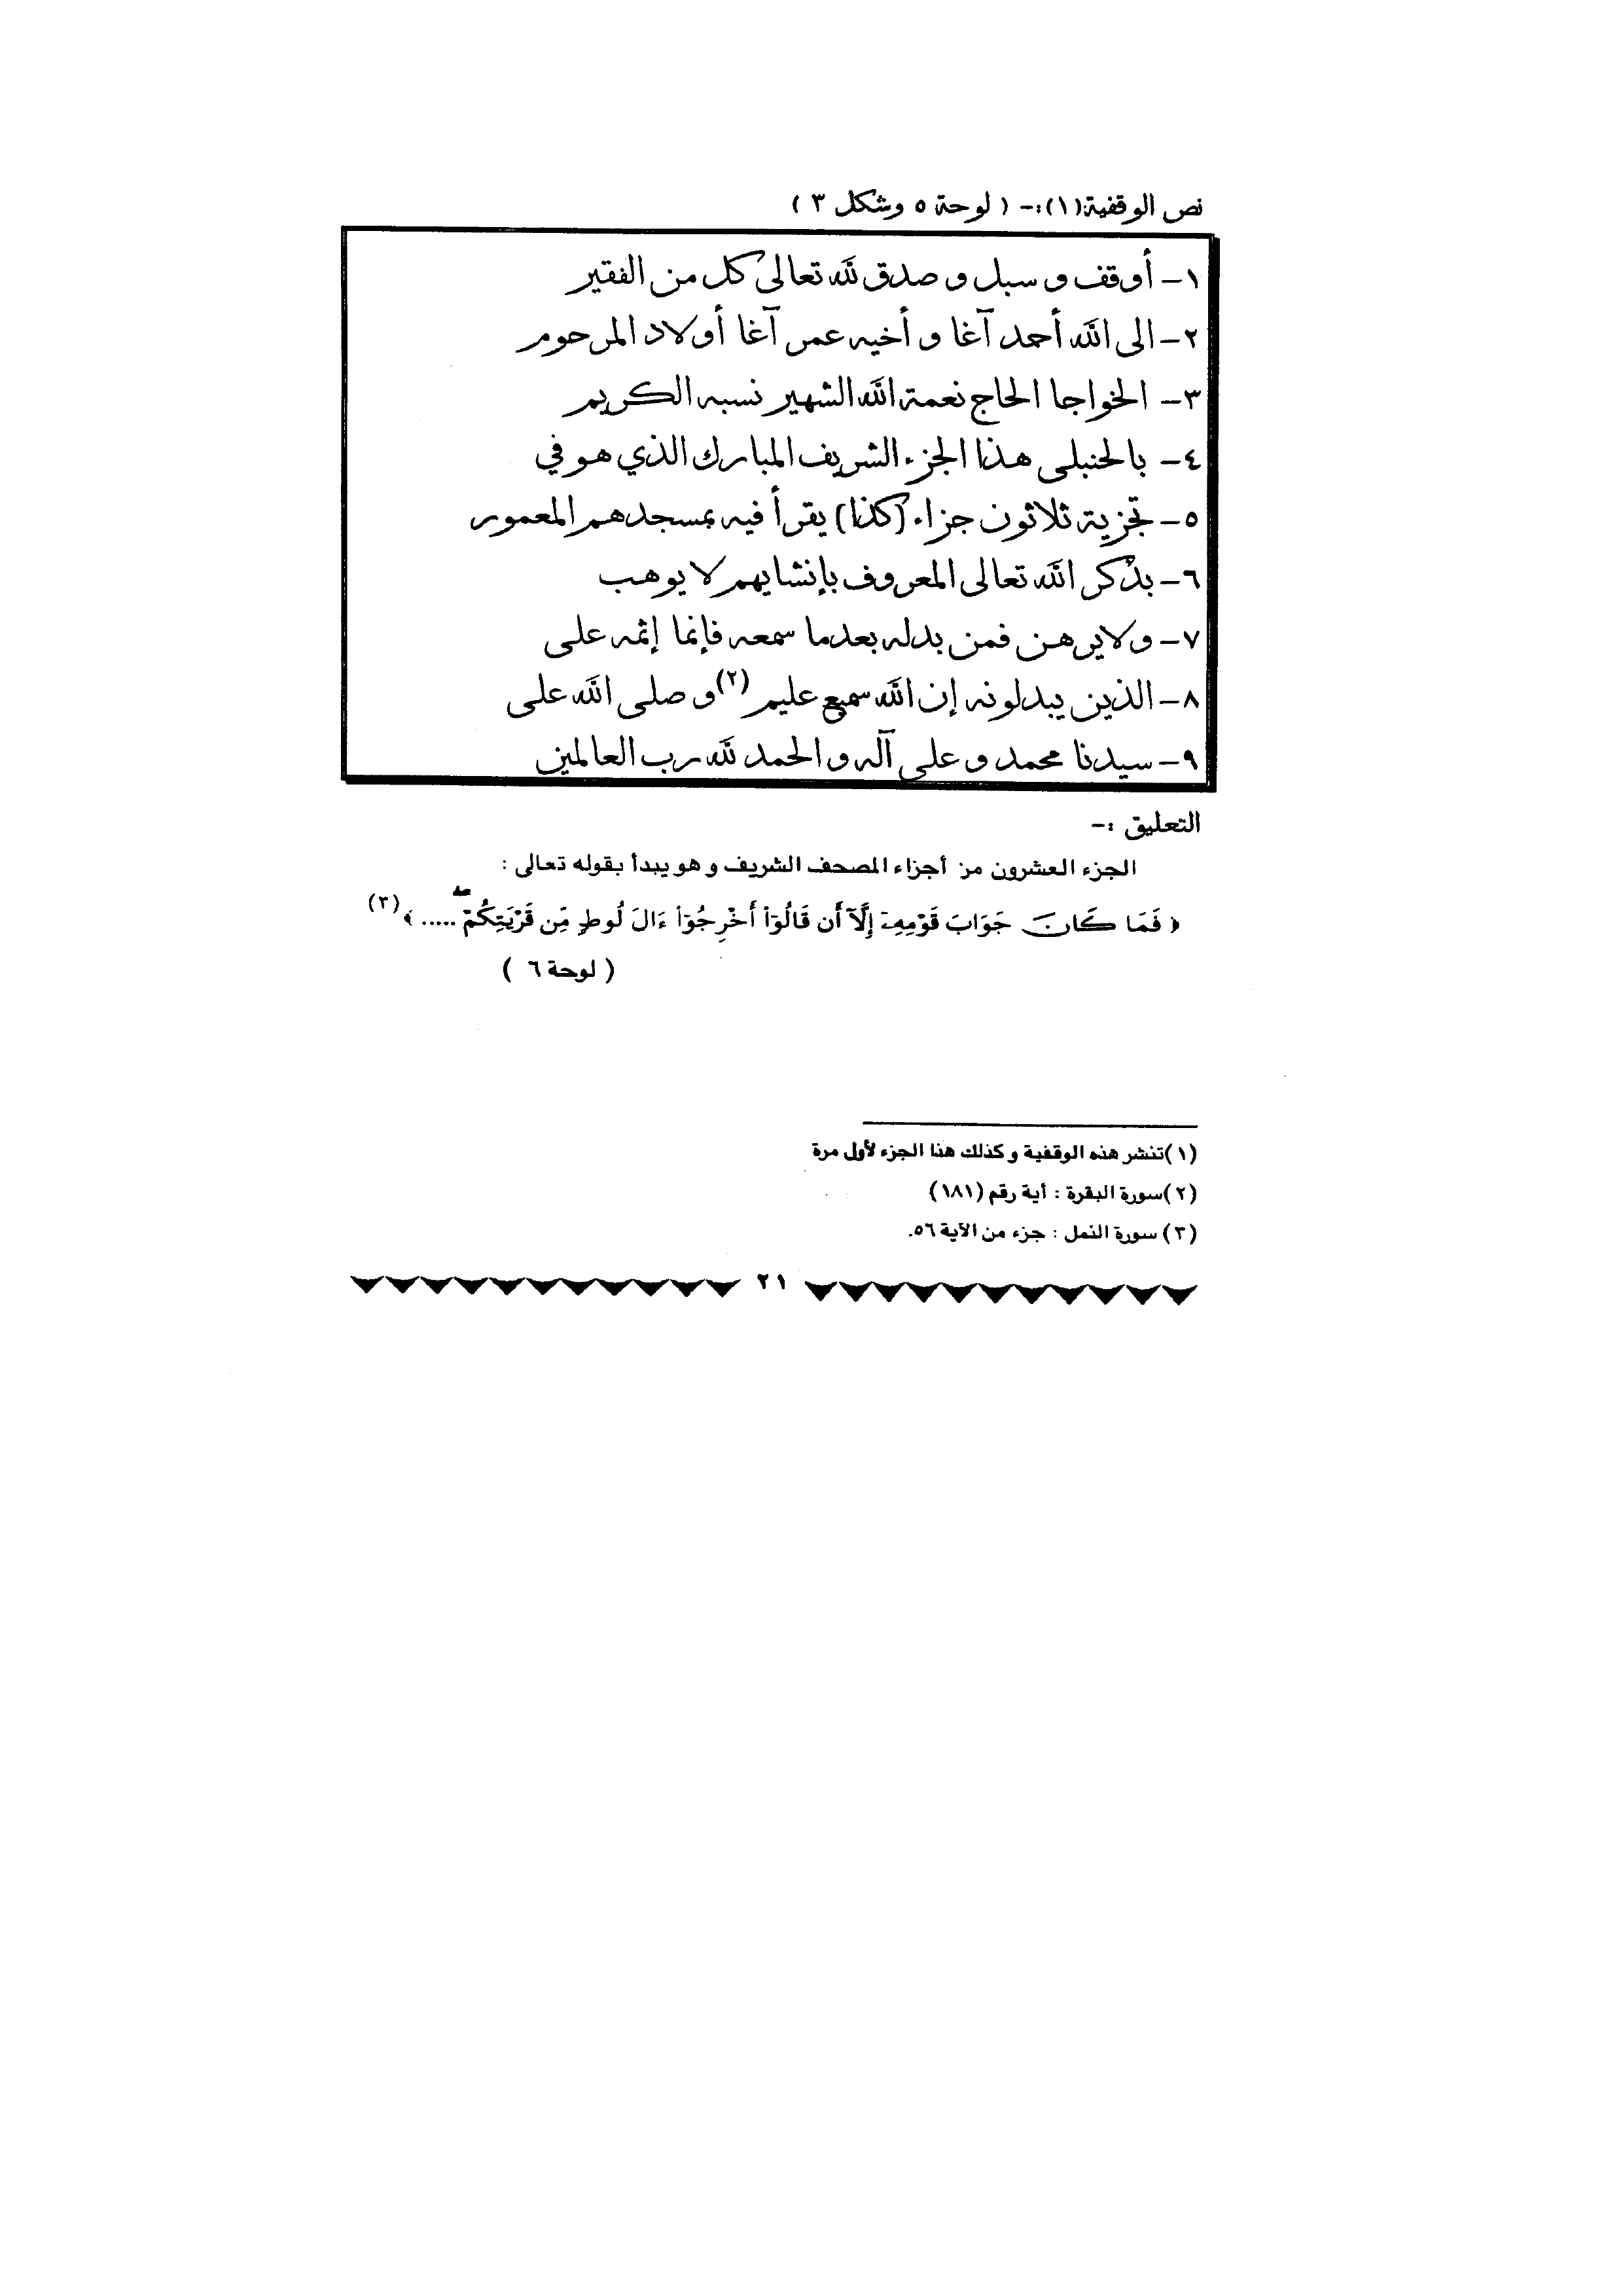 نص الوقفية(١):- ( لوحة ٥ وشكل ٣ )
١- أوقف و سبل و صدق لله تعالى كل من الفقير
٢- الى الله أحمد آغا و أخيه عمر آغا أولاد المرحوم
٣- الخواجا الحاج نعمة الله الشهير نسبه الكريم
٤- بالحنبلي هذا الجزء الشريف المبارك الذي هو في
٥- تجزية ثلاثون جزاء (كذا) يقرأ فيه بمسجدهم المعمور
٦- بذكر الله تعالى المعروف بإنشايهم لا يوهب
٧- ولايرهن فمن بدله بعدما سمعه فإنما إثمه على
٨- الذين يبدلونه إن الله سميع عليم (٢) و صلى الله على
٩- سيدنا محمد و على آله و الحمد لله رب العالمين
التعليق :-
الجزء العشرون من أجزاء المصحف الشريف و هو يبدأ بقوله تعالى :
﴿ فَمَا كَانَ جَوَابَ قَوْمِهِۦٓ إِلَّآ أَن قَالُوٓا۟ أَخْرِجُوٓا۟ ءَالَ لُوطٍ مِّن قَرْيَتِكُمْ ۖ ..... ﴾ (٣)
( لوحة ٦ )
(١)تنشر هذه الوقفية و كذلك هذا الجزء لأول مرة
(٢)سورة البقرة : أية رقم (١٨١)
(٣) سورة النمل : جزء من الآية ٥٦.
٢١